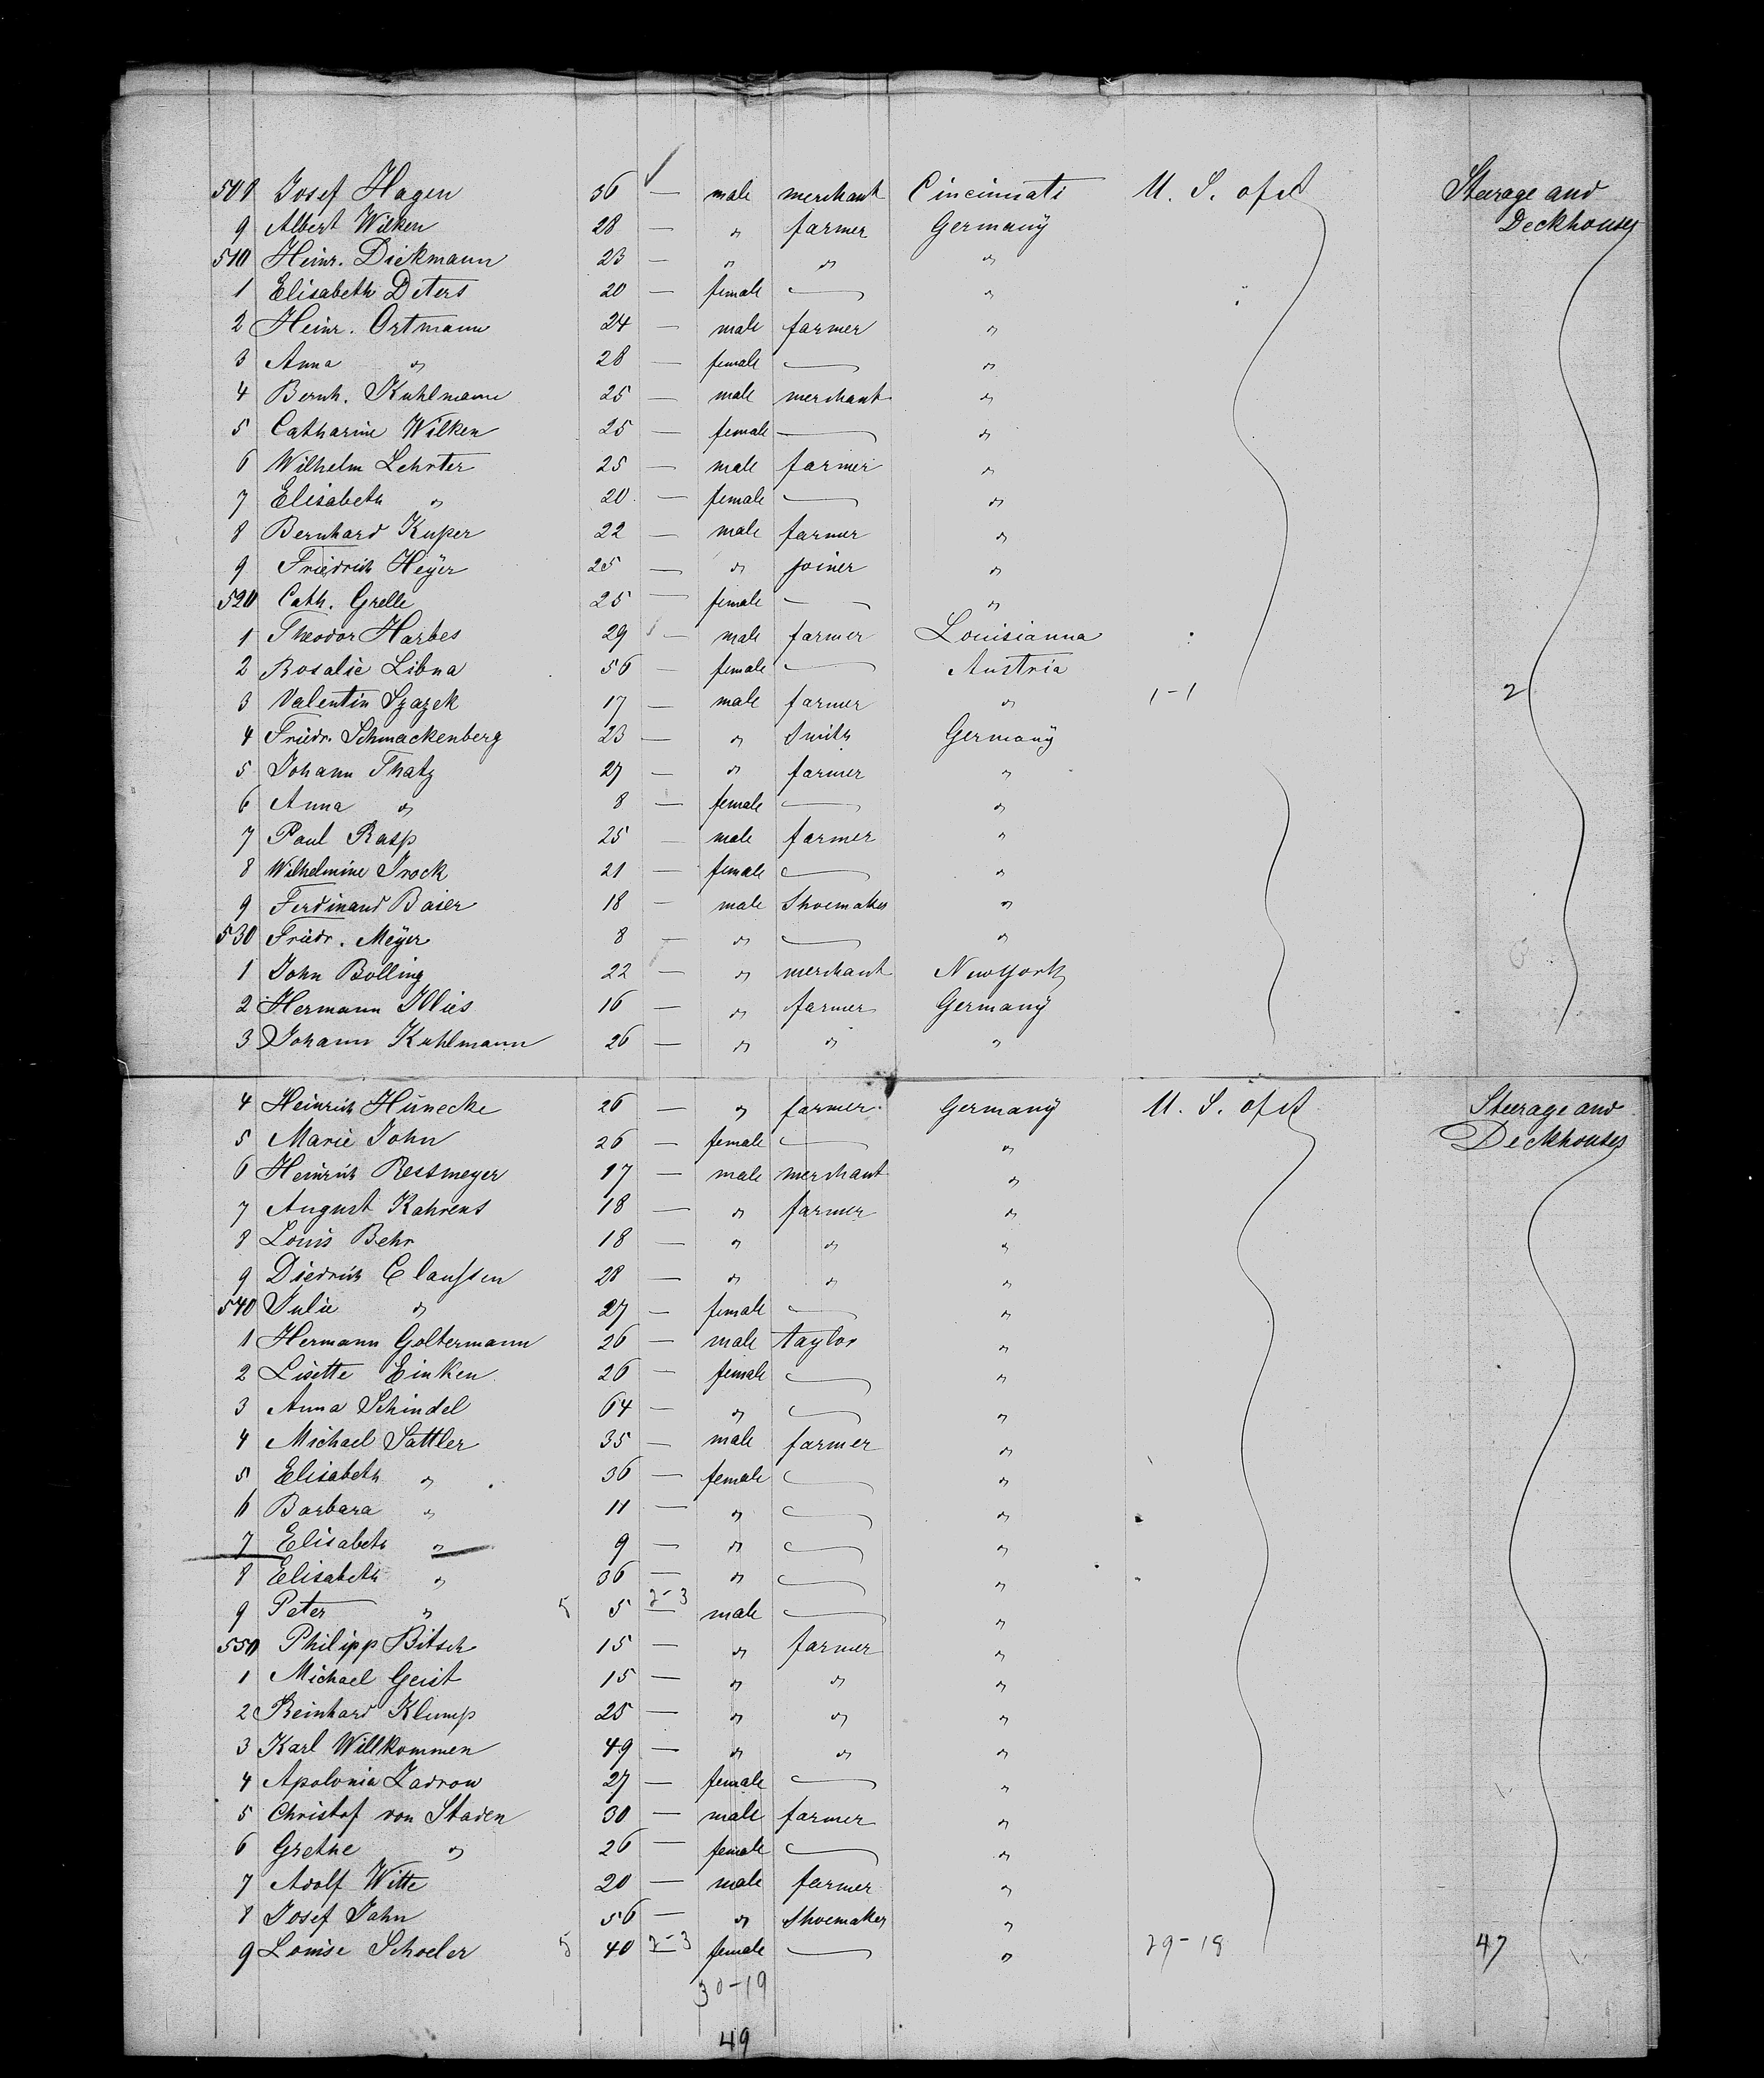 508 Josef Hagen 36 — male merchant Cincinnati U. S. of A Steerage and
9 Albert Wilken 28 — " farmer Germany Deckhouses
510 Heinr. Diekmann 23 — " " "
1 Elisabeth Deters 20 — female — "
2 Heinr. Ortmann 24 — male farmer "
3 Anna " 28 — female — "
4 Bernh. Kuhlmann 25 — male merchant "
5 Catharine Wilken 25 — female — "
6 Wilhelm Lehrter 25 — male farmer "
7 Elisabeth " 20 — female — "
8 Bernhard Kuper 22 — male farmer "
9 Friedrich Heÿer 25 — " joiner "
520 Cath. Grelle 25 — female — "
1 Theodor Harbes 29 — male farmer Louisianna
2 Rosalie Libna 56 — female — Austria
3 Valentin Szazek 17 — male farmer " 1-1 2
4 Friedr. Schmackenberg 23 — " Smith Germany
5 Johann Thatz 27 — " farmer "
6 Anna " 8 — female — "
7 Paul Rasp 25 — male farmer "
8 Wilhelmine Trock 21 — female — "
9 Ferdinand Baier 18 — male Shoemaker "
530 Friedr. Meÿer 8 — " — "
1 John Bolling 22 — " merchant New York
2 Hermann Illies 16 — " farmer Germany
3 Johann Kuhlmann 26 — " " "
4 Heinrich Hünecke 26 — " farmer Germany U. S. of A Steerage and
5 Marie John 26 — female — " Deckhouses
6 Heinrich Restmeyer 17 — male merchant "
7 August Kahrens 18 — " farmer "
8 Louis Behr 18 — " " "
9 Diedrich Claussen 28 — " " "
540 Julie " 27 — female — "
1 Hermann Goltermann 26 — male taylor "
2 Lisette Einken 26 — female — "
3 Anna Schindel 64 — " — "
4 Michael Sattler 35 — male farmer "
5 Elisabeth " 36 — female — "
6 Barbara " 11 — " — "
7 Elisabeth " 9 — " — "
8 Elisabeth " 36 — " — "
9 Peter " 5 5 2-3 male — "
550 Philipp Bitsch 15 — " farmer "
1 Michael Geist 15 — " " "
2 Reinhard Klump 25 — " " "
3 Karl Willkommen 49 — " " "
4 Apolonia Zadrow 27 — female — "
5 Christof von Staden 30 — male farmer "
6 Grethe " 26 — female — "
7 Adolf Witte 20 — male farmer "
8 Josef Jahn 56 — " Shoemaker "
9 Louise Schoeler 5 40 2-3 female — " 29-18 47
30-19
49